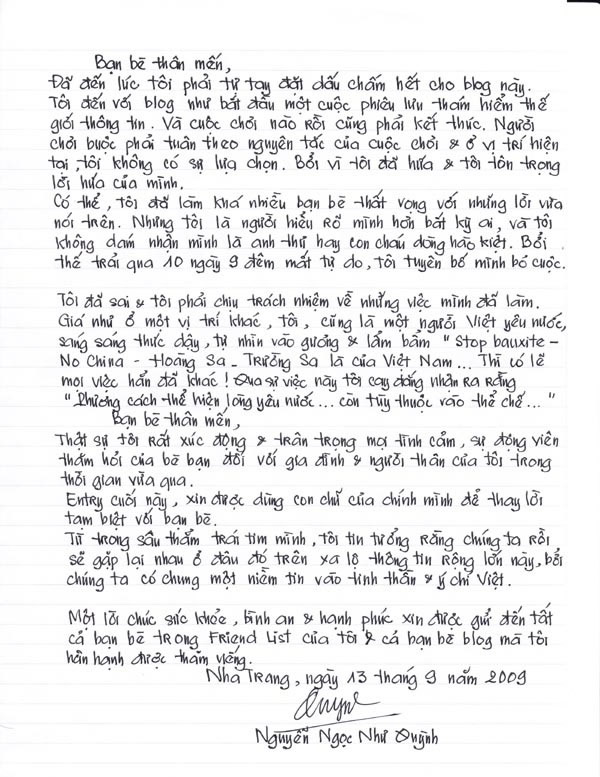 Bạn bè thân mến,
Đã đến lúc tôi phải tự tay đặt dấu chấm hết cho blog này.
Tôi đến với blog như bắt đầu một cuộc phiêu lưu thám hiểm thế
giới thông tin. Và cuộc chơi nào rồi cũng phải kết thúc. Người
chơi buộc phải tuân theo nguyên tắc của cuộc chơi & ở vị trí hiện
tại, tôi không có sự lựa chọn. Bởi vì tôi đã hứa & tôi tôn trọng
lời hứa của mình.
Có thể, tôi đã làm khá nhiều bạn bè thất vọng với những lời vừa
nói trên. Nhưng tôi là người hiểu rõ mình hơn bất kỳ ai, và tôi
không dám nhận mình là anh thư hay con cháu dòng hào kiệt. Bởi
thế trải qua 10 ngày 9 đêm mất tự do, tôi tuyên bố mình bỏ cuộc.
Tôi đã sai & tôi phải chịu trách nhiệm về những việc mình đã làm.
Giá như ở một vị trí khác, tôi, cũng là một người Việt yêu nước,
sáng sáng thức dậy, tự nhìn vào gương & lẩm bẩm " Stop bauxite -
No China - Hoàng Sa - Trường Sa là của Việt Nam ... Thì có lẽ
mọi việc hẳn đã khác ! Qua sự việc này tôi cay đắng nhận ra rằng
" Phương cách thể hiện lòng yêu nước ... còn tùy thuộc vào thể chế ... "
Bạn bè thân mến,
Thật sự tôi rất xúc động & trân trọng mọi tình cảm, sự động viên
thăm hỏi của bè bạn đối với gia đình & người thân của tôi trong
thời gian vừa qua.
Entry cuối này, xin được dùng con chữ của chính mình để thay lời
tạm biệt với bạn bè.
Từ trong sâu thẳm trái tim mình, tôi tin tưởng rằng chúng ta rồi
sẽ gặp lại nhau ở đâu đó trên xa lộ thông tin rộng lớn này, bởi
chúng ta có chung một niềm tin vào tinh thần & ý chí Việt.
Một lời chúc sức khỏe, bình an & hạnh phúc xin được gửi đến tất
cả bạn bè trong Friend List của tôi & cả bạn bè blog mà tôi
hân hạnh được thăm viếng.
Nha Trang, ngày 13 tháng 9 năm 2009
Quỳnh
Nguyễn Ngọc Như Quỳnh